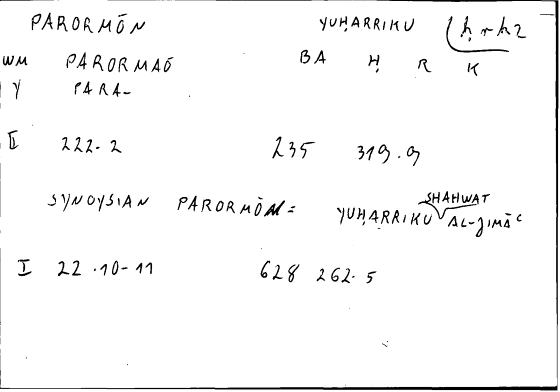 PARORMŌN YUḤARRIKU
WM PARORMAŌ BA Ḥ R K
Y PARA-
II 222.2 235 319.9
SYNOYSIAN PARORMŌN = YUḤARRIKU SHAHWAT AL-JIMĀʿ
I 22.10-11 628 262.5